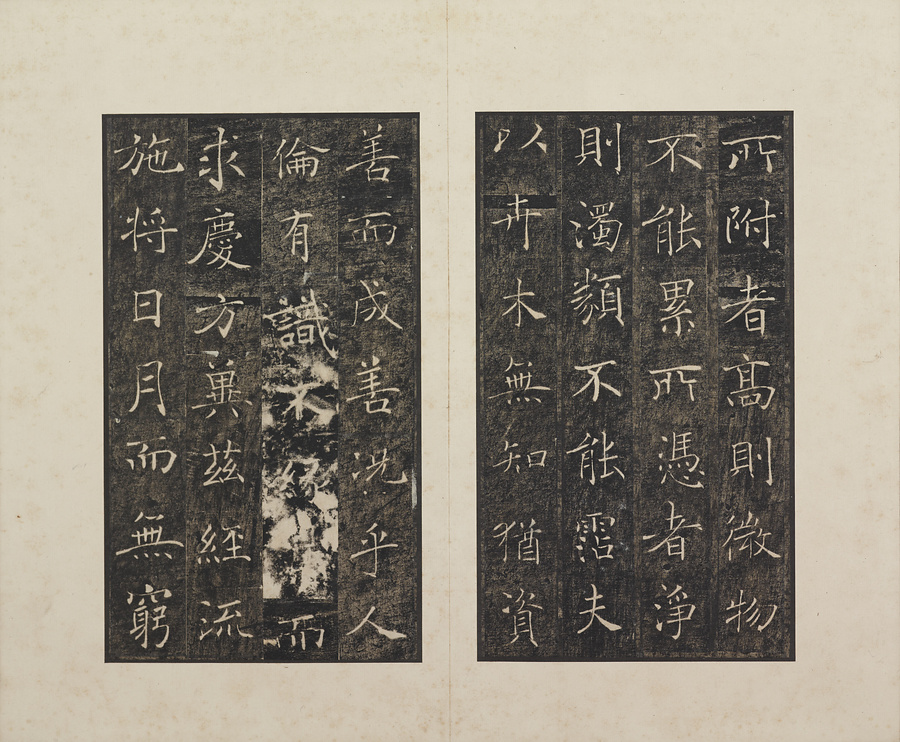 所附者高則微物
不能累所憑者淨
則濁類不能霑夫
以卉木無知猶資
善而成善況乎人
倫有識不而
求慶方冀茲經流
施将日月而無窮